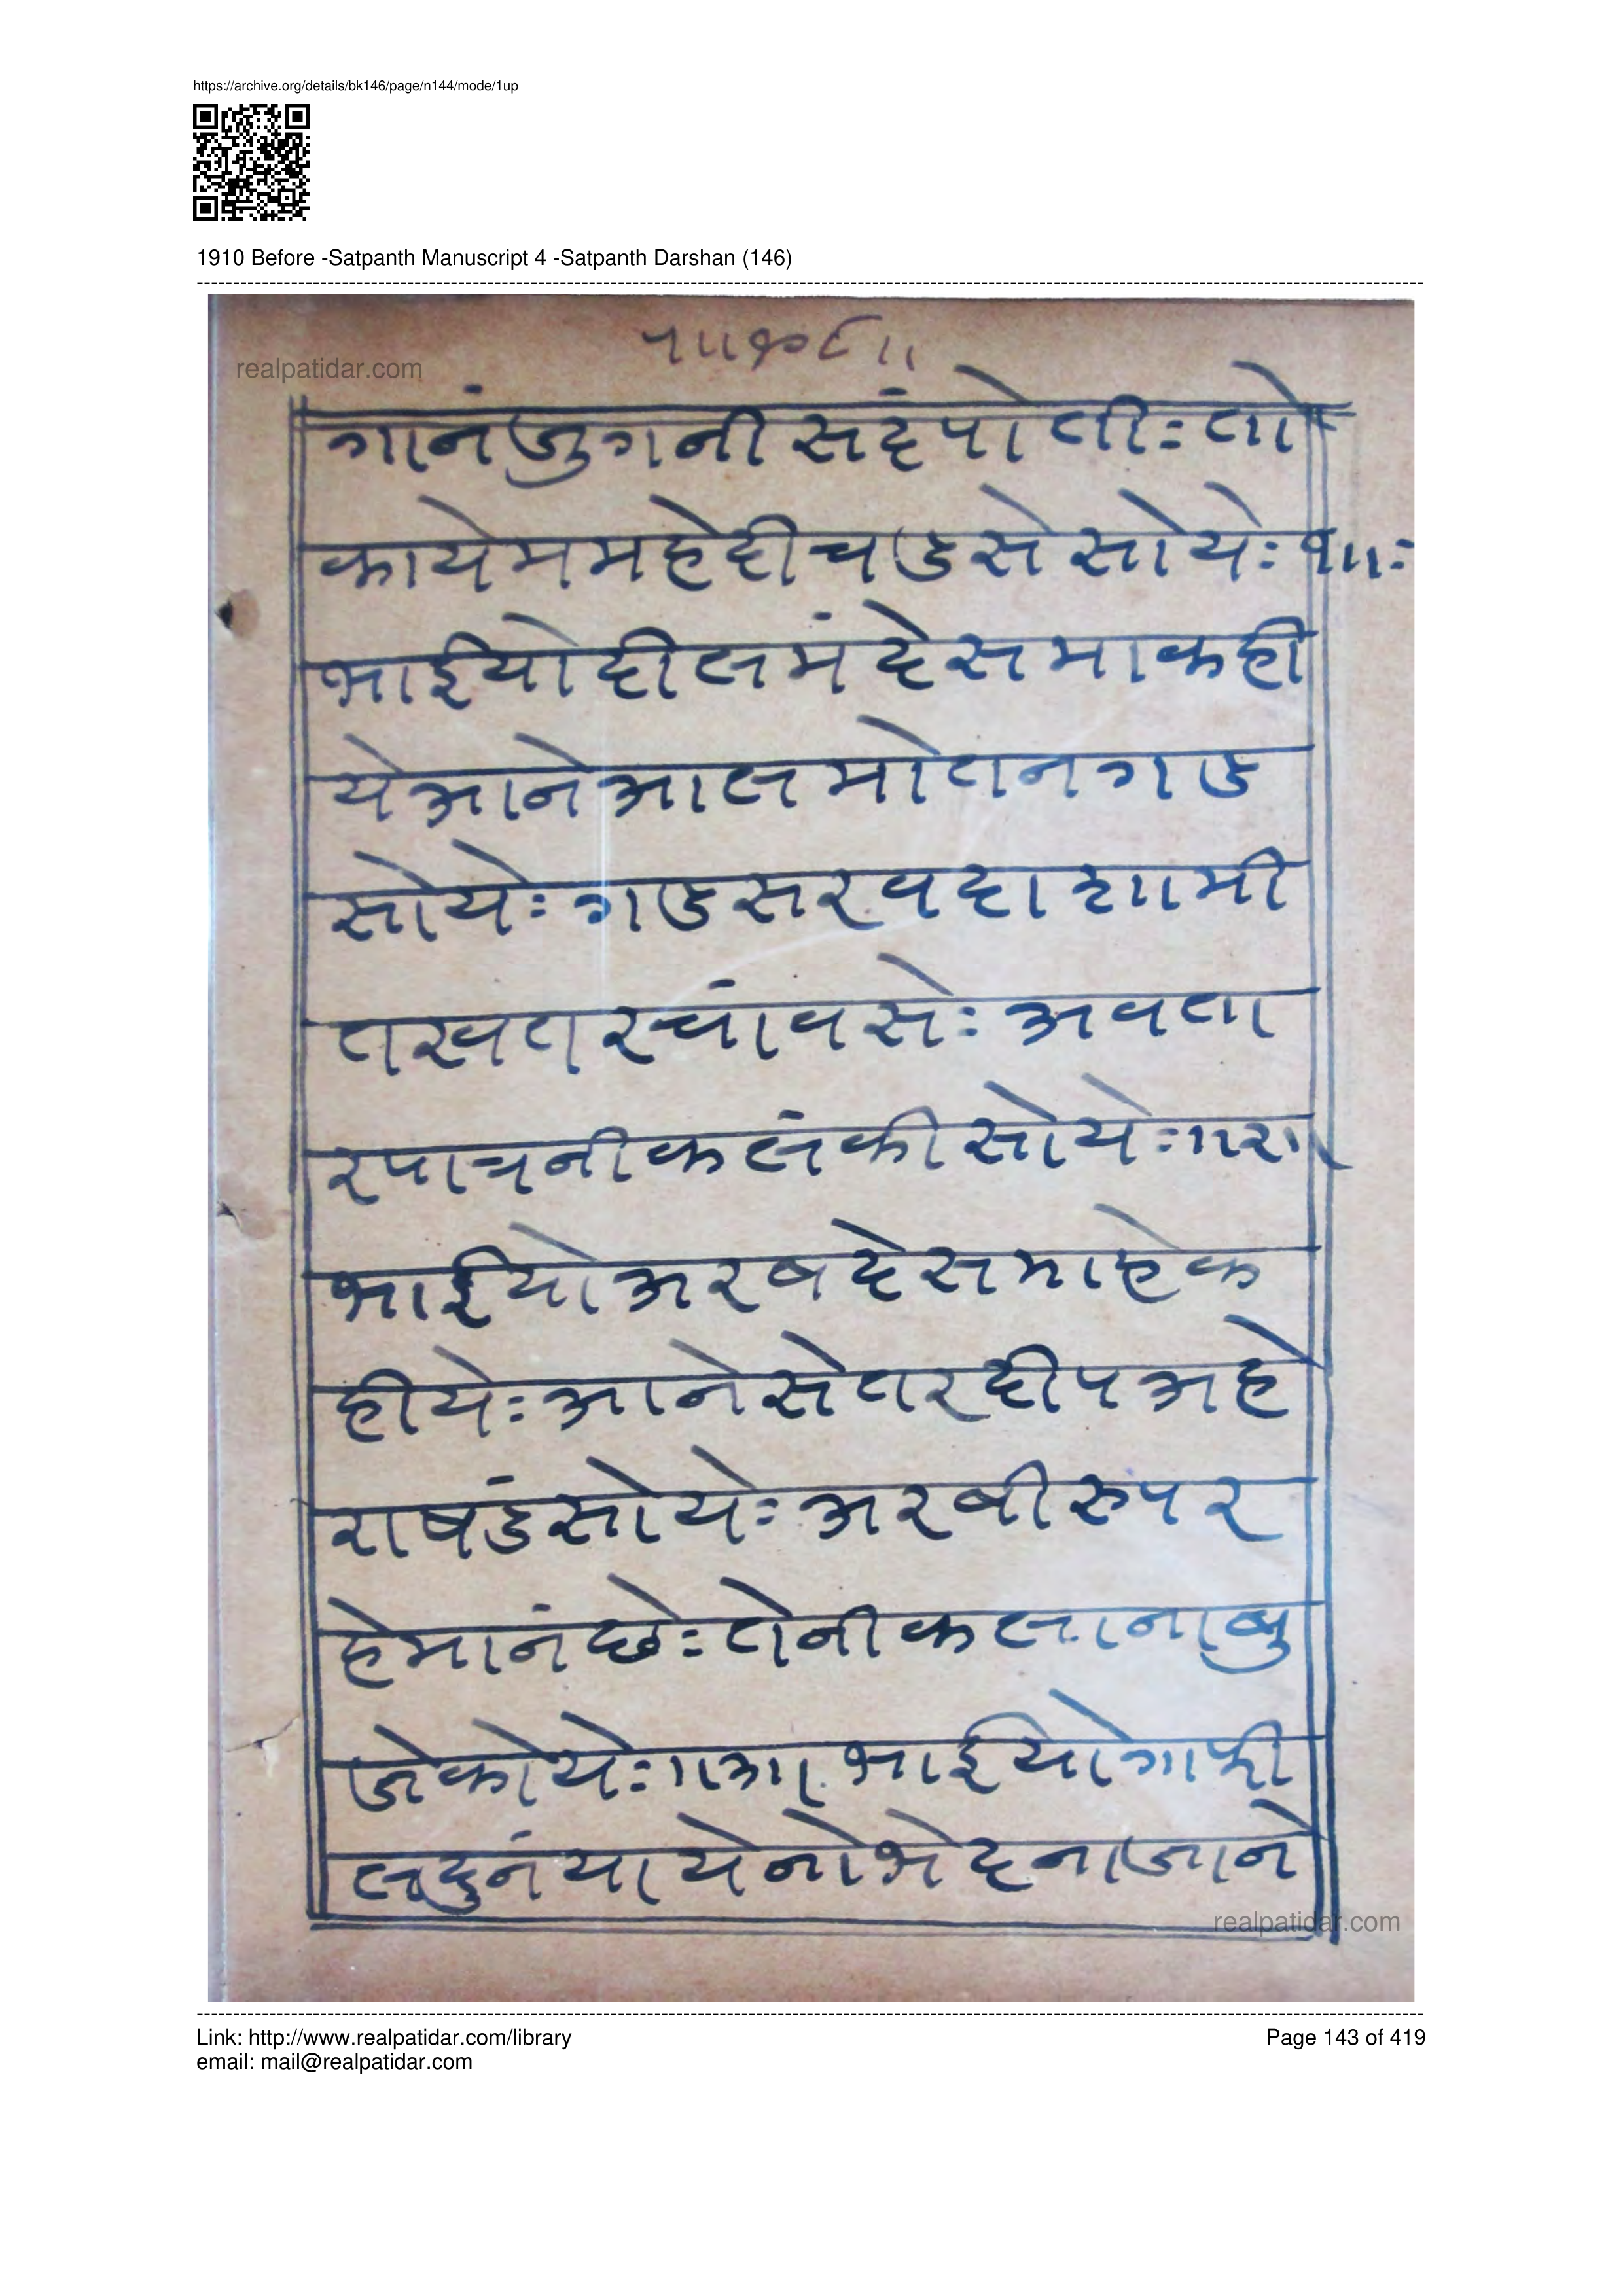 https://archive.org/details/bk146/page/n144/mode/1up
1910 Before -Satpanth Manuscript 4 -Satpanth Darshan (146)
realpatidar.com
गानंजुगनी सदंपोती: तो
कायेममहेदीचडसे सोये: १॥:
भाईयोदीलमंदेसमाकही
येआनेआलमोतनगड
सोये: गडसरवदाशामी
तखतरचांवसे: अवता
रपात्रनीकलंकीसोये:॥२॥
भाईयोअरबदेसमाहेक
हीये: आनेसेतरदीपअहे
राषडंसोये: अरबीरुपर
हेमानंछे: तेनीकलानाबु
जेकोये:॥३॥ भाईयोगाफी
लदुनंयायेनोभेदनाजाने
realpatidar.com
Link: http://www.realpatidar.com/library
Page 143 of 419
email: mail@realpatidar.com